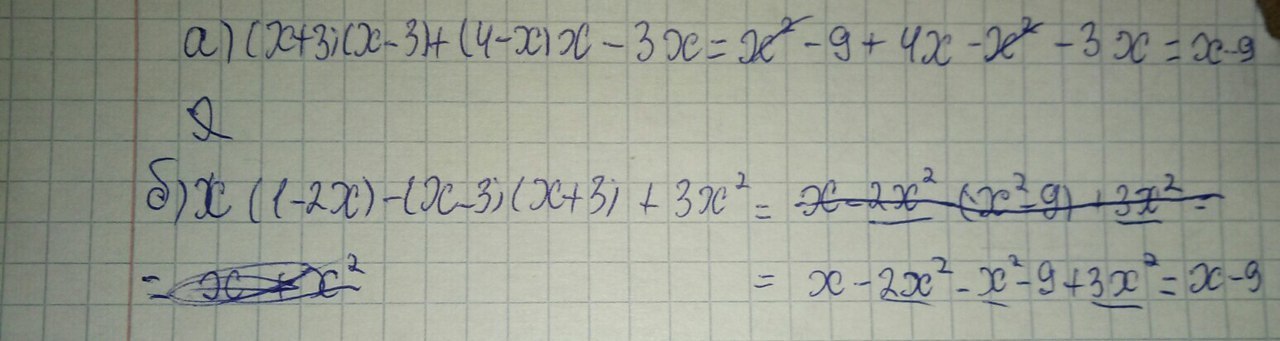 а) (x+3)(x-3)+(4-x)x-3x=x²-9+4x-x²-3x=x-9
2
б) x(1-2x)-(x-3)(x+3)+3x²= x-2x²-(x²-9)+3x²=
= x+x² = x-2x²-x²-9+3x²=x-9